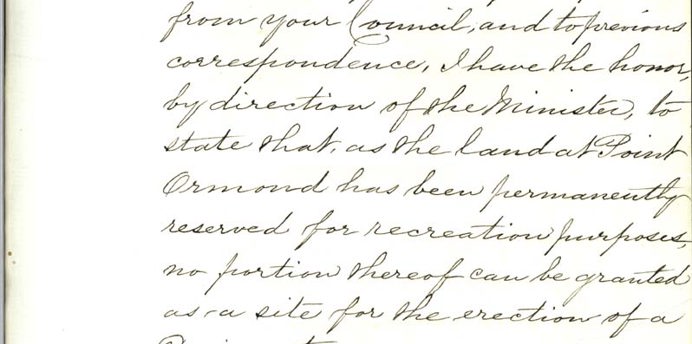 from your Council, and to previous
correspondence, I have the honor,
by direction of the Minister, to
state that, as the land at Point
Ormond has been permanently
reserved for recreation purposes,
no portion thereof can be granted
as a site for the erection of a